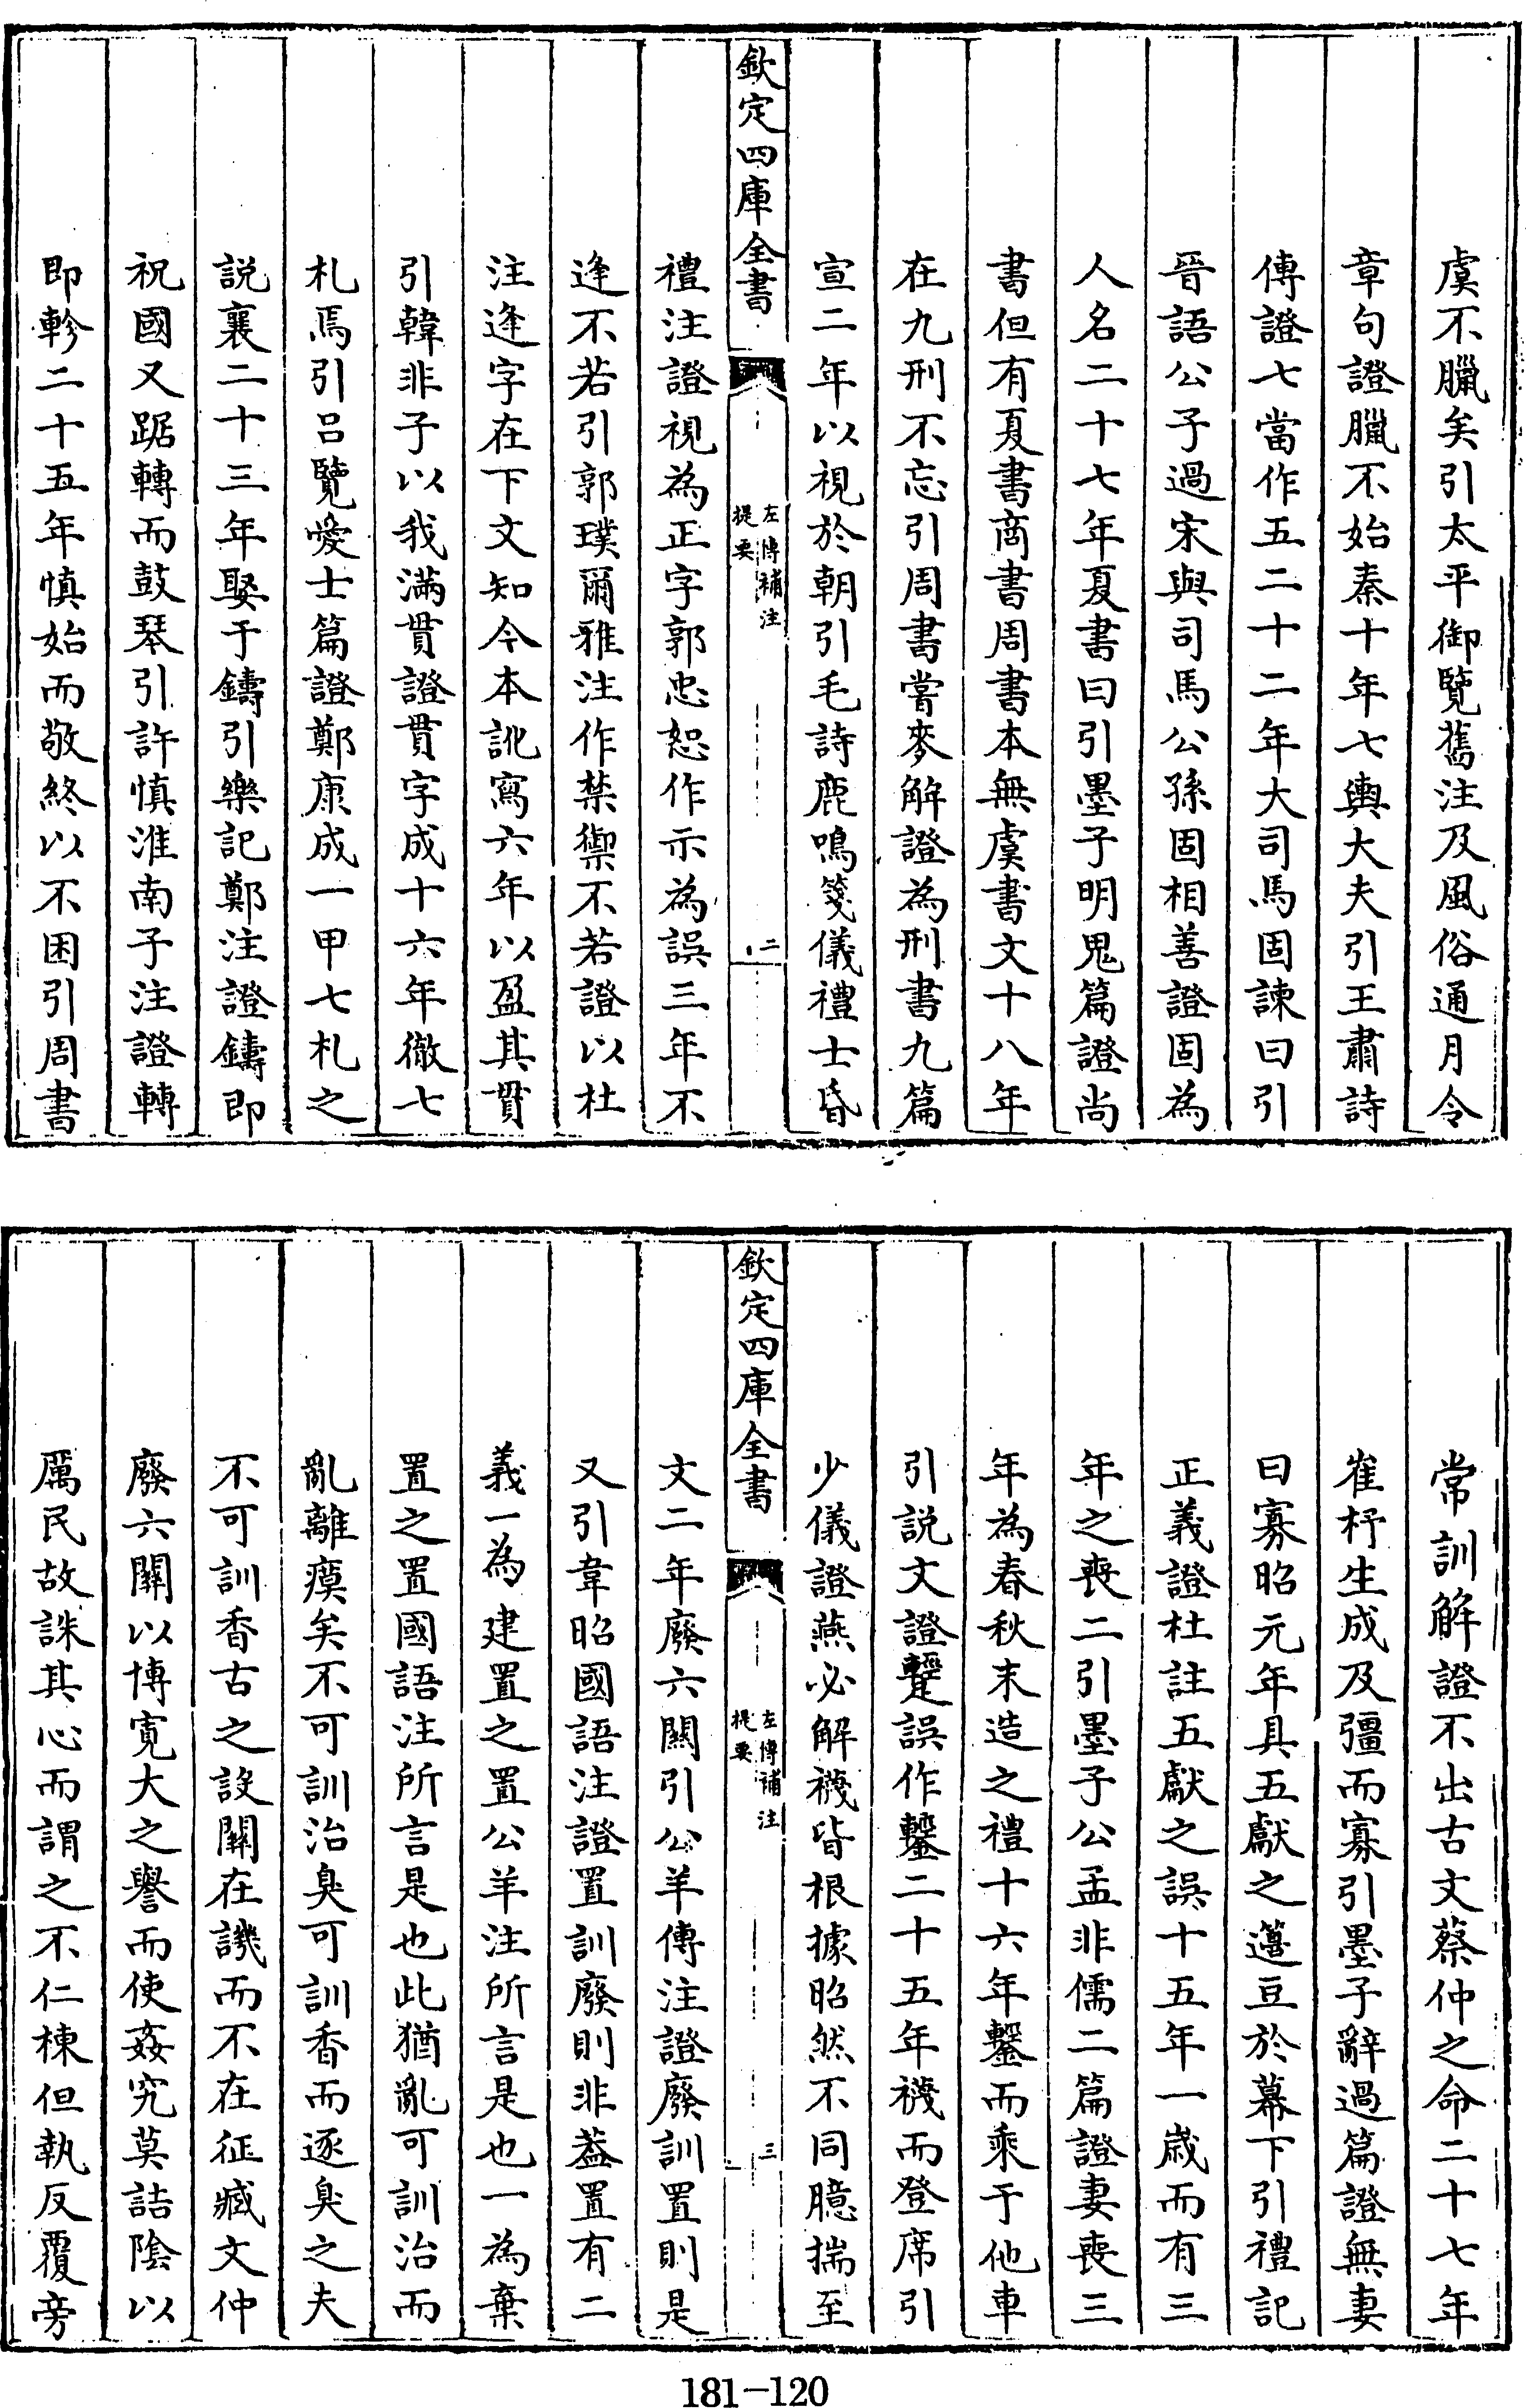 虞不臘矣引太平御覽舊注及風俗通月令
章句證臘不始秦十年七輿大夫引王肅詩
傳證七當作五二十二年大司馬固諫曰引
晉語公子過宋與司馬公孫固相善證固為
人名二十七年夏書曰引墨子明鬼篇證尚
書但有夏書商書周書本無虞書文十八年
在九刑不忘引周書嘗麥解證為刑書九篇
宣二年以視於朝引毛詩鹿鳴箋儀禮士昏
欽定四庫全書
左傳補注
提要
二
禮注證視為正字郭忠恕作示為誤三年不
逢不若引郭璞爾雅注作禁禦不若證以杜
注逢字在下文知今本訛寫六年以盈其貫
引韓非子以我滿貫證貫字成十六年徹七
札焉引吕覽愛士篇證鄭康成一甲七札之
說襄二十三年娶于鑄引樂記鄭注證鑄即
祝國又踞轉而鼓琴引許慎淮南子注證轉
即軫二十五年慎始而敬終以不困引周書
常訓解證不出古文蔡仲之命二十七年
崔杼生成及彊而寡引墨子辭過篇證無妻
曰寡昭元年具五獻之籩豆於幕下引禮記
正義證杜註五獻之誤十五年一歲而有三
年之喪二引墨子公孟非儒二篇證妻喪三
年為春秋末造之禮十六年鑋而乘于他車
引説文證䠩誤作鑋二十五年襪而登席引
少儀證燕必解襪皆根據昭然不同臆揣至
欽定四庫全書
左傳補注
提要
三
文二年廢六關引公羊傳注證廢訓置則是
又引韋昭國語注證置訓廢則非葢置有二
義一為建置之置公羊注所言是也一為棄
置之置國語注所言是也此猶亂可訓治而
亂離瘼矣不可訓治臭可訓香而逐臭之夫
不可訓香古之設關在譏而不在征臧文仲
廢六關以博寬大之譽而使姦宄莫詰陰以
厲民故誅其心而謂之不仁棟但執反覆旁
181-120